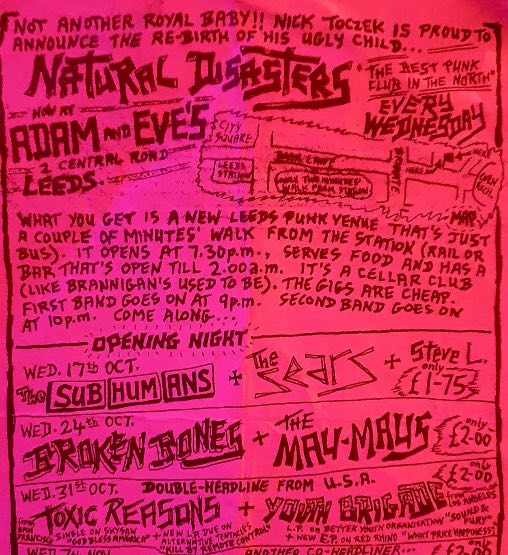 NOT ANOTHER ROYAL BABY!! NICK TOCZEK IS PROUD TO
ANNOUNCE THE RE-BIRTH OF HIS UGLY CHILD...
NATURAL DISASTERS
"THE BEST PUNK
CLUB IN THE NORTH"
NOW AT
ADAM AND EVE'S
2 CENTRAL ROAD
LEEDS.
EVERY
WEDNESDAY
CITY
SQUARE
LEEDS
STATION
WALK FROM STATION
HERE
MAP
WHAT YOU GET IS A NEW LEEDS PUNK VENUE THAT'S JUST
A COUPLE OF MINUTES' WALK FROM THE STATION (RAIL OR
BUS). IT OPENS AT 7.30p.m., SERVES FOOD AND HAS A
BAR THAT'S OPEN TILL 2.00a.m. IT'S A CELLAR CLUB
(LIKE BRANNIGAN'S USED TO BE). THE GIGS ARE CHEAP.
FIRST BAND GOES ON AT 9p.m. SECOND BAND GOES ON
AT 10p.m. COME ALONG...
OPENING NIGHT
WED. 17th OCT.
The SUBHUMANS + The Sears + STEVE L.
only
£1-75
WED. 24th OCT.
BROKEN BONES + THE MAU-MAUS
only
£2-00
WED. 31st OCT. DOUBLE-HEADLINE FROM U.S.A.
only
£2-00
TOXIC REASONS + YOUTH BRIGADE
from
SAN
FRANCISCO
SINGLE ON SKYSAW
"GOD BLESS AMERICA"
+ NEW L.P. DUE ON
ALTERNATIVE TENTACLES
"KILL BY REMOTE CONTROL"
from
LOS ANGELES
L.P. ON BETTER YOUTH ORGANISATION "SOUND &
FURY"
+ NEW E.P. ON RED RHINO "WHAT PRICE HAPPINESS?"
WED 7th NOV.
ANOTHER CO-HEADLINER...